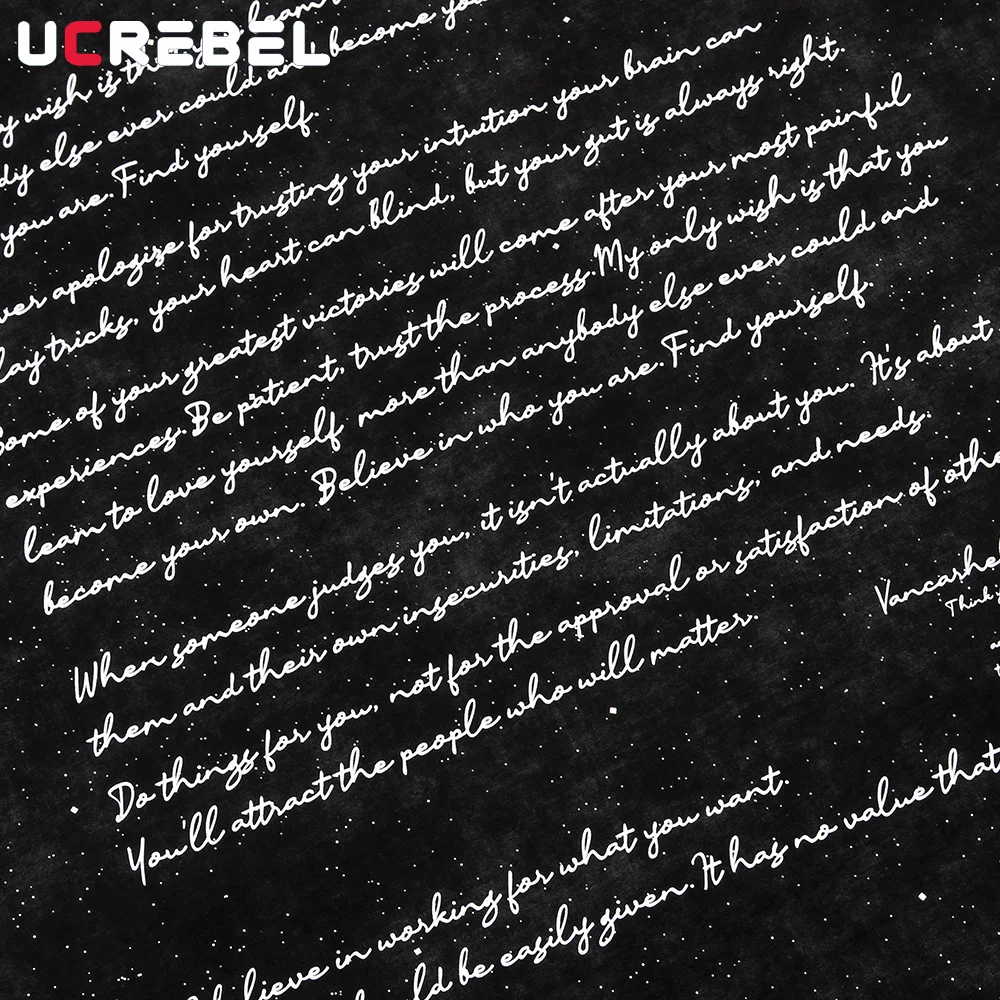 UCREBEL
wish is
else ever could and become
you are. Find yourself.
apologize for trusting your intuition your brain can
tricks, your heart can blind, but your gut is always right.
Some of your greatest victories will come after your most painful
experiences. Be patient, trust the process. My only wish is that you
learn to love yourself more than anybody else ever could and
become your own. Believe in who you are. Find yourself.
When someone judges you, it isn't actually about you. It's about
them and their own insecurities, limitations, and needs.
Do things for you, not for the approval or satisfaction of
You'll attract the people who will matter.
Think
in working for what you want.
be easily given. It has no value that